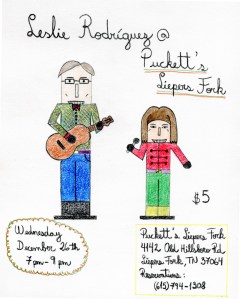 Leslie Rodríguez @
Puckett's
Leipers Fork
$5
Wednesday
December 26th
7 pm - 9 pm
Puckett's Leipers Fork
4142 Old Hillsboro Rd.
Leipers Fork, TN 37064
Reservations:
(615) 794-1308